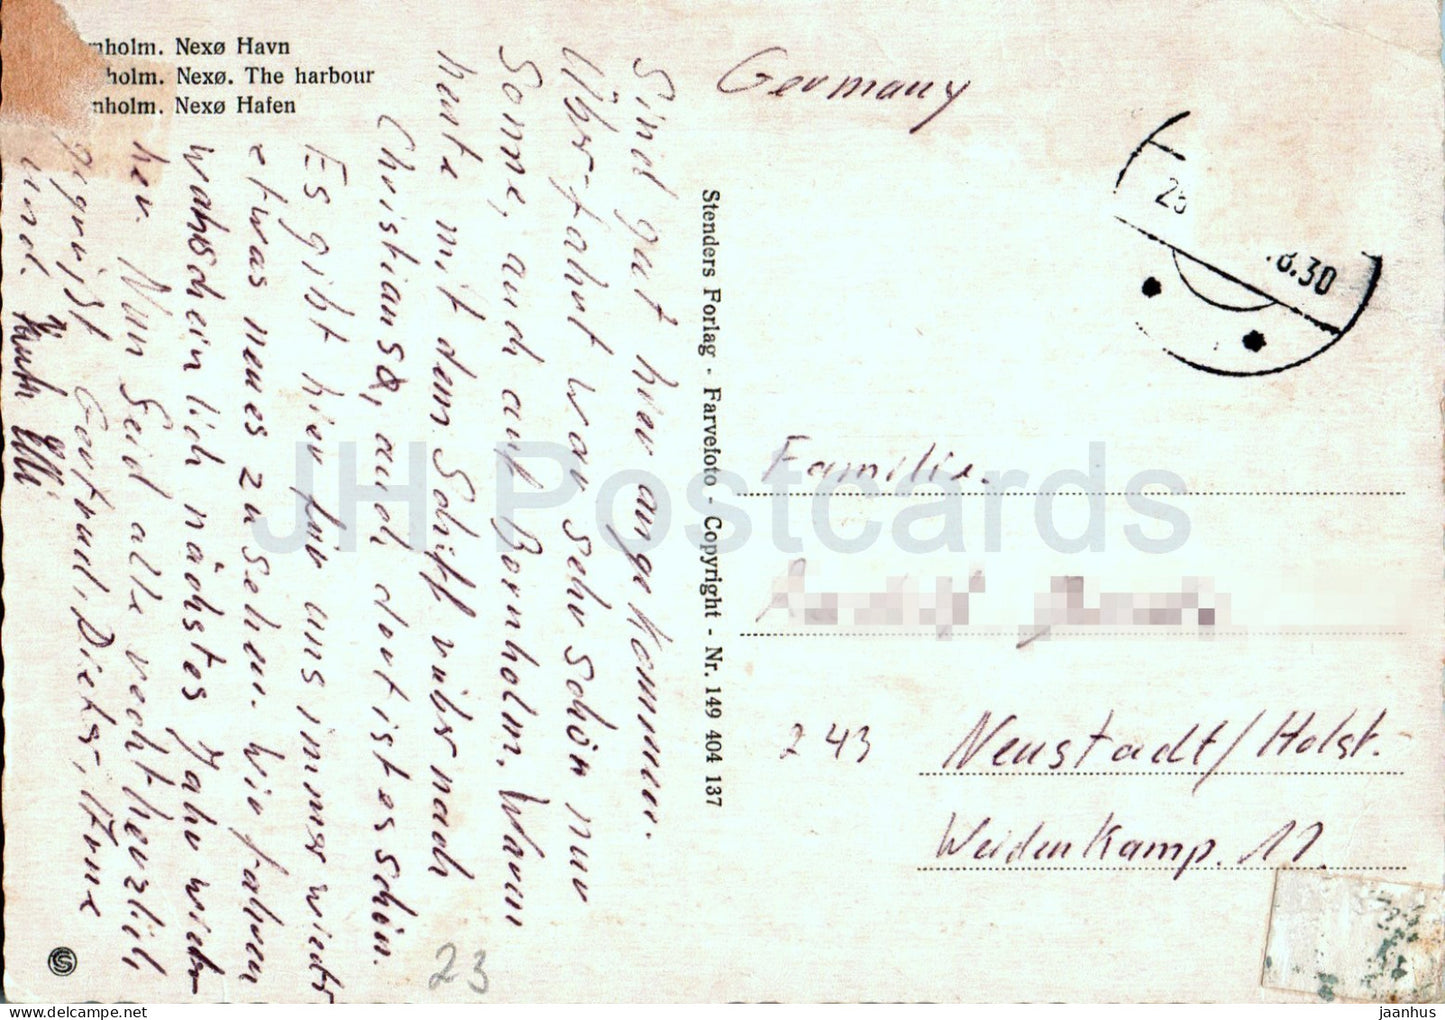 nholm. Nexø Havn
holm. Nexø. The harbour
nholm. Nexø Hafen
Sind gut hier angekommen.
Über-fahrt war sehr schön nur
Sonne, auch auf Bornholm. Waren
heute mit dem Schiff rüber nach
Christiansø, auch dort ist es schön.
Es gibt hier für uns immer wieder
etwas neues zu sehen. Wir fahren
wahscheinlich nächstes Jahr wieder
her. Nun Seid alle recht herzlich
gegrüßt Gertrud, Dieter,
und
Stenders Forlag - Farvefoto - Copyright - Nr. 149 404 137
Germany
.8.30
Familie.
243 Neustadt/Holst.
Weidenkamp. 11.
23
S
JH Postcards
jaanhus
delcampe.net